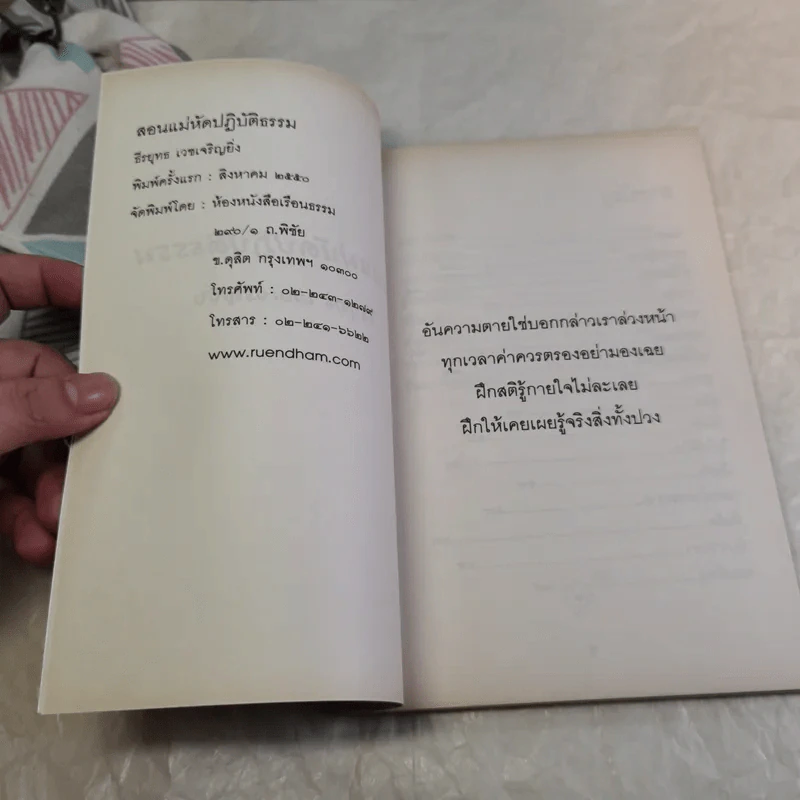 สอนแม่หัดปฏิบัติธรรม
ธีรยุทธ เวชเจริญยิ่ง
พิมพ์ครั้งแรก : สิงหาคม ๒๕๕๐
จัดพิมพ์โดย : ห้องหนังสือเรือนธรรม
๒๙๖/๑ ถ.พิชัย
ข.ดุสิต กรุงเทพฯ ๑๐๓๐๐
โทรศัพท์ : ๐๒-๒๔๓-๑๒๗๙
โทรสาร : ๐๒-๒๔๑-๖๖๒๒
www.ruendham.com
อันความตายใช่บอกกล่าวเราล่วงหน้า
ทุกเวลาค่าควรตรองอย่ามองเฉย
ฝึกสติรู้กายใจไม่ละเลย
ฝึกให้เคยเผยรู้จริงสิ่งทั้งปวง